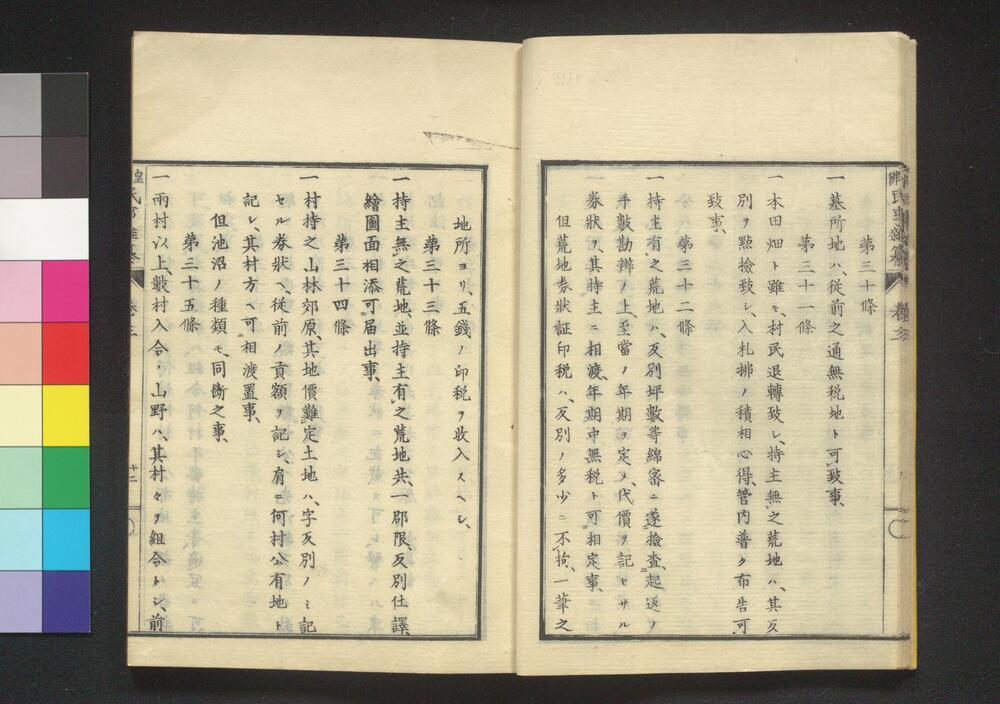 第三十條
一墓所地ハ、従前之通無税地ト可致事、
第三十一條
一本田畑ト雖モ、村民退轉致シ、持主無之荒地ハ、其反
別ヲ點撿致シ、入札拂ノ積相心得、管内普ク布告可
致事、
第三十二條
一持主有之荒地ハ、反別坪數等綿密ニ遂撿査、起返ノ
手數勘辨ノ上、至當ノ年期ヲ定メ、代價ヲ記セサル
券狀ヲ、其持主ニ相渡、年期中無税ト可相定事、
但荒地券狀証印税ハ、反別ノ多少ニ不拘、一筆之
地所ヨリ、五錢ノ印税ヲ收入スヘシ、
第三十三條
一持主無之荒地、並持主有之荒地共、一郡限、反別仕譯、
繪圖面相添可届出事、
第三十四條
一村持之山林郊原、其地價難定土地ハ、字反別ノミ記
セル券狀ヘ、從前ノ貢額ヲ記シ、肩ニ何村公有地ト
記シ、其村方ヘ可相渡置事、
但池沼ノ種類モ、同斷之事、
第三十五條
一兩村以上數村入合ノ山野ハ、其村々ヲ組合トシ、前